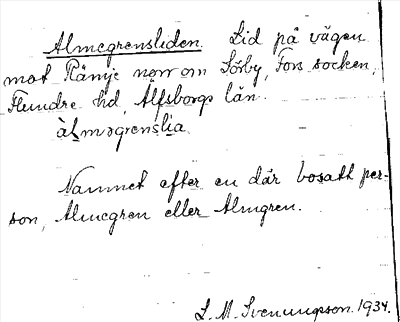 Almegrensliden. Lid på vägen
mot Rämje norr om Sörby, Fors socken,
Flundre hd, Älfsborgs län.
àlməgrənslia
Namnet efter en där bosatt per-
son, Almegren eller Almgren.
L. M. Svenungsson. 1934.